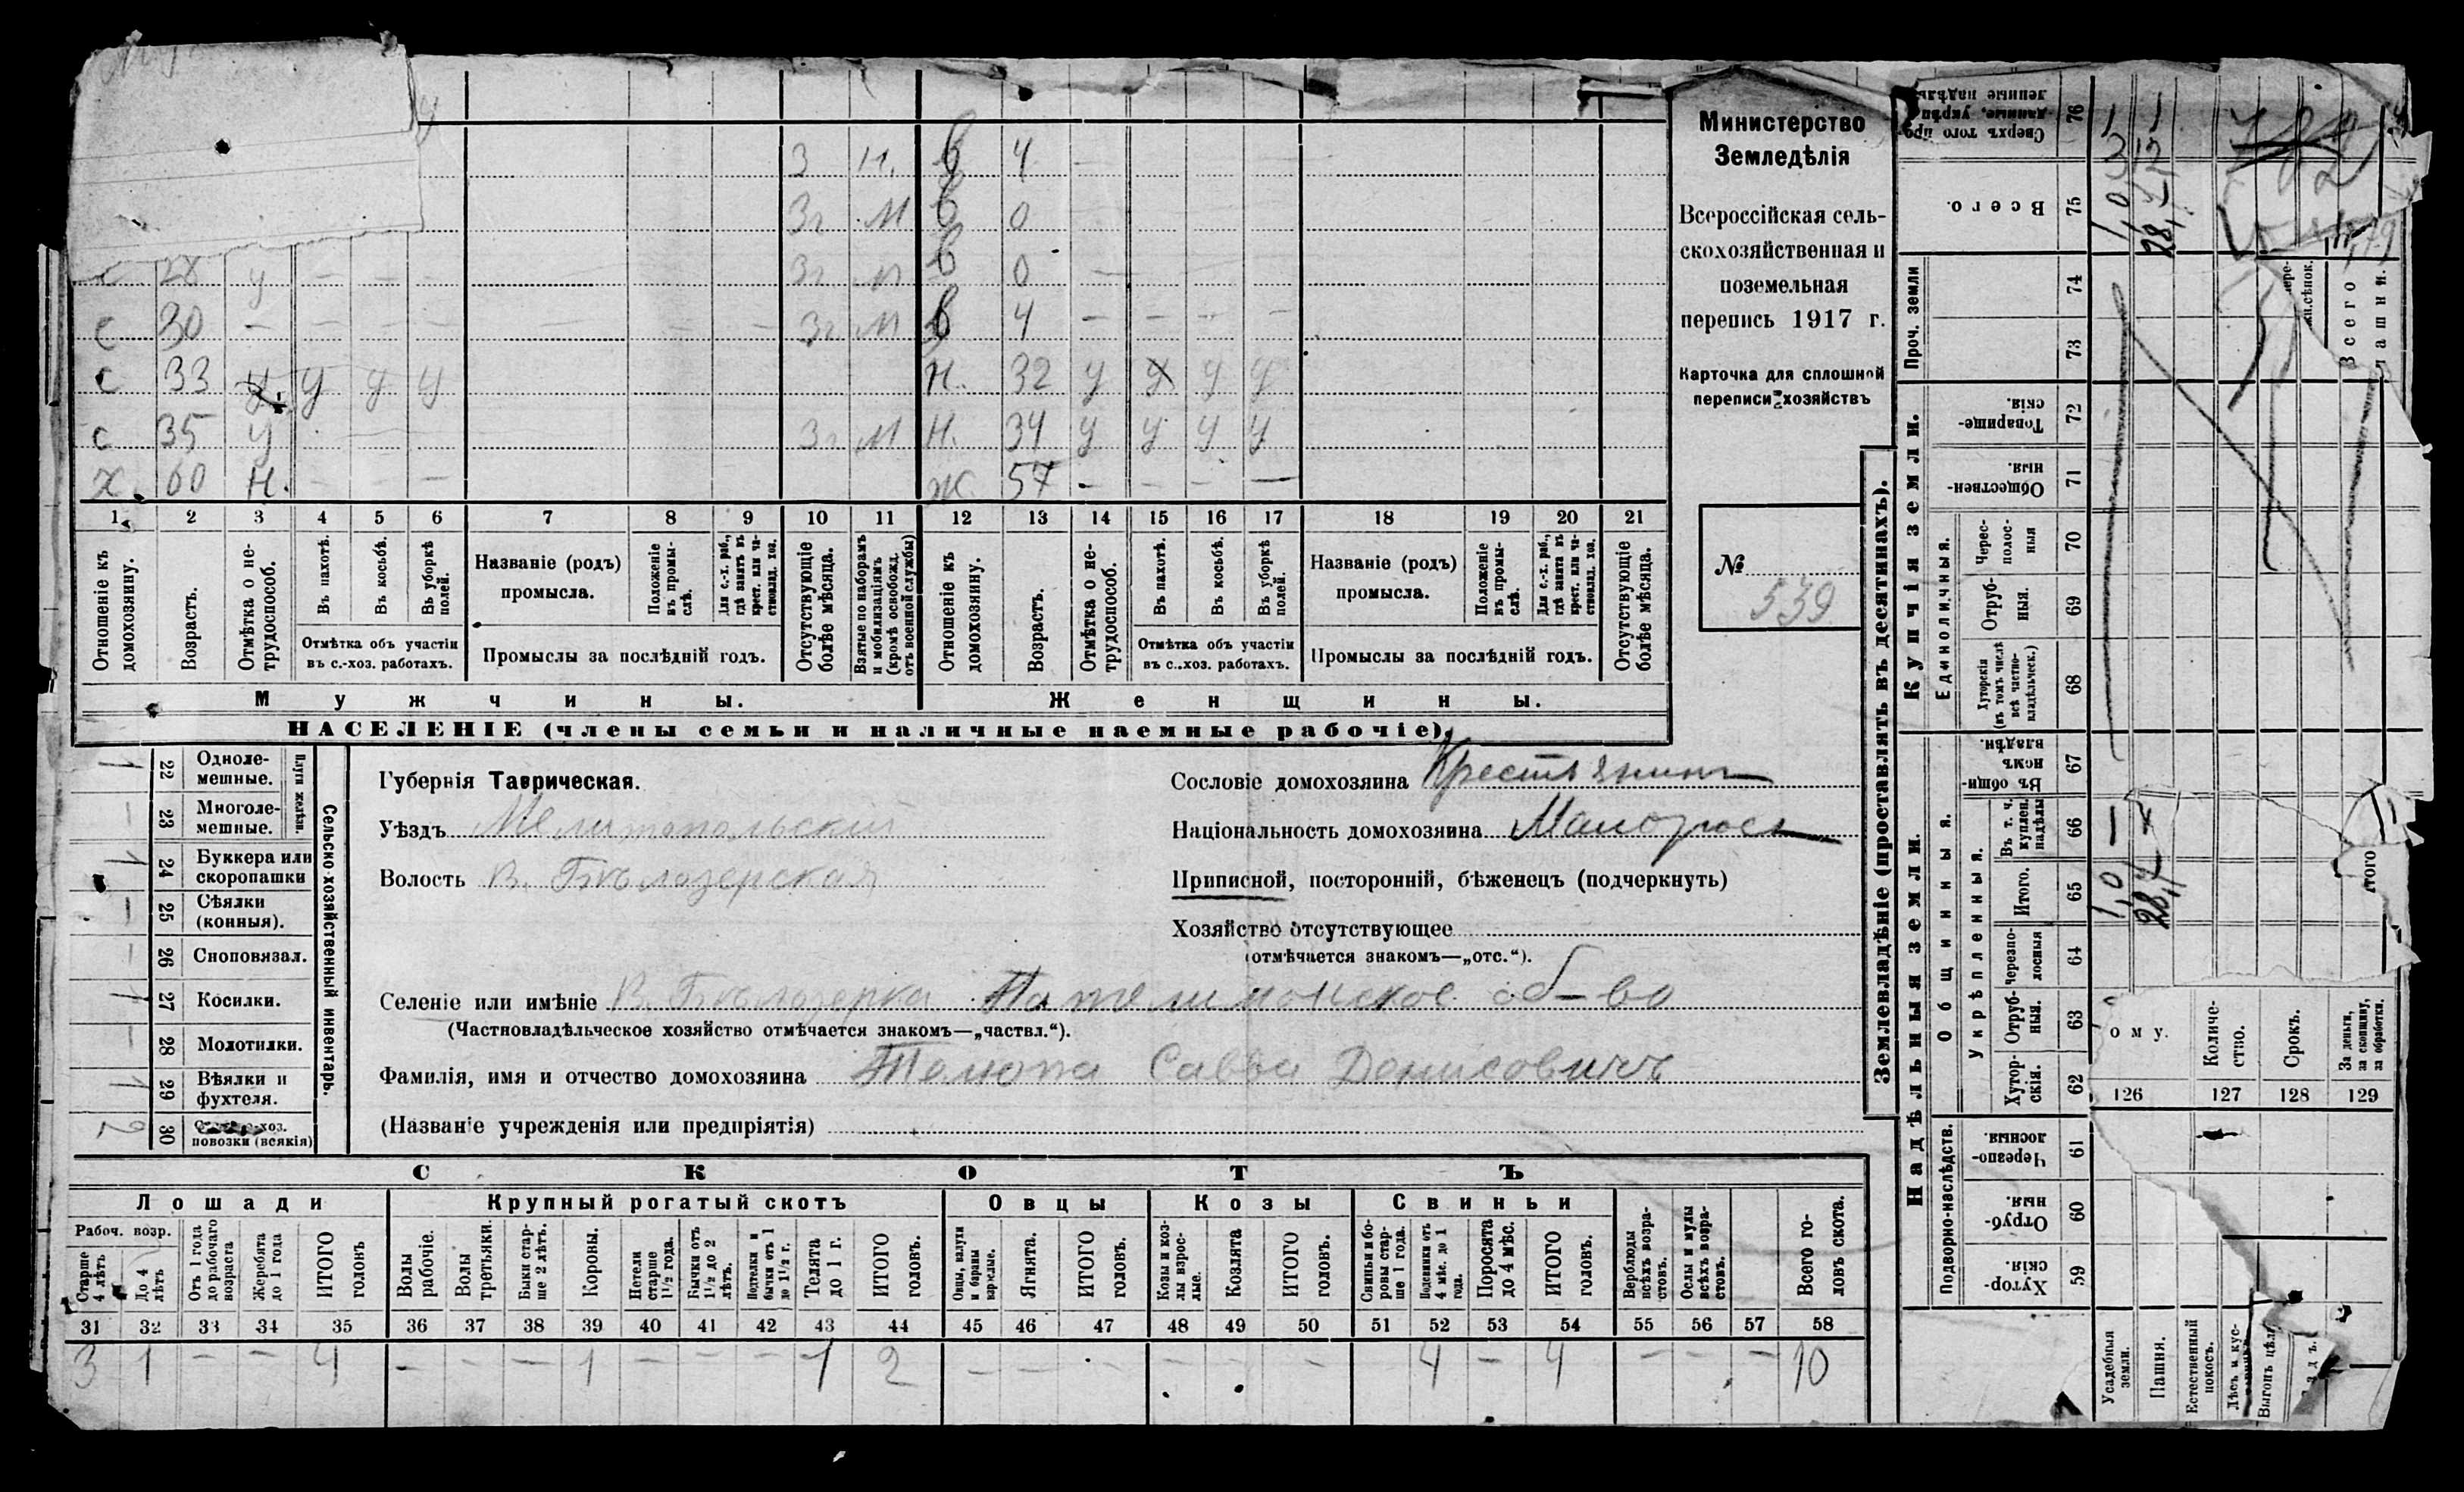 З Н. В 4 –
Зг М В 0
с 28 у – – – Зг М В 0 –
с 30 – – – – Зг М В 4 – – – –
с 33 у у у у Н. 32 у у у у
с 35 у Зг М Н. 34 у у у у
х. 60 Н. – – – Ж 57 – – – –
1 2 3 4 5 6 7 8 9 10 11 12 13 14 15 16 17 18 19 20 21
Отношеніе къ домохозяину.
Возрастъ.
Отмѣтка о нетрудоспособ.
Въ пахотѣ.
Въ косьбѣ.
Въ уборкѣ полей.
Отмѣтка объ участіи
въ с.-хоз. работахъ.
Названіе (родъ)
промысла.
Положеніе въ промыслѣ.
Для с.-х. раб., гдѣ занятъ въ крест. или частновлад. хоз.
Промыслы за послѣдній годъ.
Отсутствующіе болѣе мѣсяца.
Взятые по наборамъ и мобилизаціямъ (кромѣ освобожд. отъ военной службы)
Отношеніе къ домохозяину.
Возрастъ.
Отмѣтка о нетрудоспособ.
Въ пахотѣ.
Въ косьбѣ.
Въ уборкѣ полей.
Отмѣтка объ участіи
въ с.-хоз. работахъ.
Названіе (родъ)
промысла.
Положеніе въ промыслѣ.
Для с.-х. раб., гдѣ занята въ крест. или частновлад. хоз.
Промыслы за послѣдній годъ.
Отсутствующіе болѣе мѣсяца.
Мужчины.
Женщины.
НАСЕЛЕНІЕ (члены семьи и наличные наемные рабочіе).
Министерство
Земледѣлія
Всероссійская сель-
скохозяйственная и
поземельная
перепись 1917 г.
Карточка для сплошной
переписи хозяйствъ
№
539
22 Одноле-
мешные.
23 Многоле-
мешные.
Плуги желѣзн.
24 Буккера или
скоропашки
25 Сѣялки
(конныя).
26 Сноповязал.
27 Косилки.
28 Молотилки.
29 Вѣялки и
фухтеля.
30 хоз.
повозки (всякія)
2
Сельско-хозяйственный инвентарь.
Губернія Таврическая.
Уѣздъ Мелитопольский
Волость В. Бѣлозерская
Сословіе домохозяина Крестьянинъ
Національность домохозяина Малоросъ
Приписной, посторонній, бѣженецъ (подчеркнуть)
Хозяйство отсутствующее
(отмѣчается знакомъ—„отс.“).
Селеніе или имѣніе В. Бѣлозерка об-во
(Частновладѣльческое хозяйство отмѣчается знакомъ—„частвл.“).
Фамилія, имя и отчество домохозяина Телюпа Савва Денисовичъ
(Названіе учрежденія или предпріятія)
СКОТЪ
Лошади Крупный рогатый скотъ Овцы Козы Свиньи
Рабоч. возр.
Старше 4 лѣтъ
До 4 лѣтъ
Отъ 1 года до рабочаго возраста
Жеребята до 1 года
ИТОГО головъ
Волы рабочіе.
Волы третьяки.
Быки старше 2 лѣтъ.
Коровы.
Нетели старше 1½ года.
Бычки отъ 1½ до 2 лѣтъ.
Нотелки и бычки отъ 1 до 1½ г.
Телята до 1 г.
ИТОГО головъ.
Овцы, валухи и бараны взрослые.
Ягнята.
ИТОГО головъ.
Козы и козлы взрослые.
Козлята
ИТОГО головъ.
Свиньи и боровы старше 1 года.
Подсвинки отъ 4 мѣс. до 1 года.
Поросята до 4 мѣс.
ИТОГО головъ.
Верблюды всѣхъ возрастовъ.
Ослы и мулы всѣхъ возрастовъ.
Всего головъ скота.
31 32 33 34 35 36 37 38 39 40 41 42 43 44 45 46 47 48 49 50 51 52 53 54 55 56 57 58
3 1 – – 4 – – – 1 – – – 1 2 – – – – – – 4 – 4 – – – 10
Землевладѣніе (проставлять въ десятинахъ).
Сверхъ того
76
Всего. 75
1,0
28,4
Проч. земли
74
73
Купчія земли.
Товарищескія. 72
Общественныя. 71
Единоличныя.
Чересполосныя 70
Отрубныя. 69
Хуторскія (въ томъ числѣ всѣ частновладѣльческ.) 68
Надѣльныя земли.
Общинныя.
Въ общинномъ владѣн. 67
Укрѣпленныя.
Въ т. ч. куплен. надѣлы 66
Итого. 65
1,0
28,4
Черезполосныя 64
Отрубныя. 63
Хуторскія. 62
Подворно-наслѣдств.
Черезполосныя 61
Отрубныя. 60
Хуторскія. 59
Усадебныя земли.
Пашня.
Естественный покосъ.
Выгонъ
Всего пашни.
ому.
Количество.
Срокъ.
За деньги, за скопщину, за обработки.
126 127 128 129